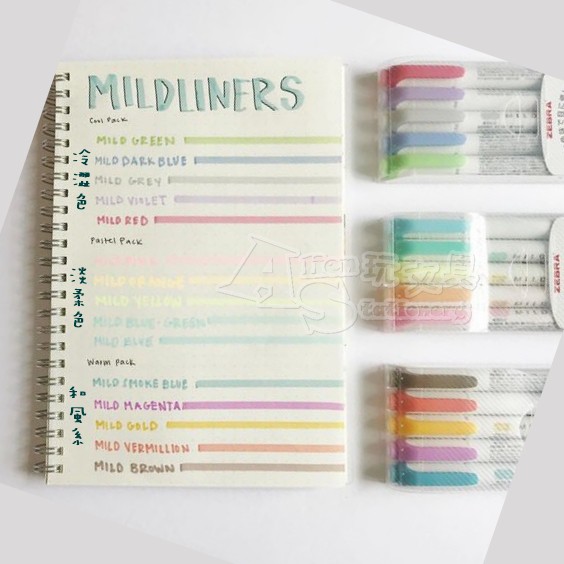 MILDLINERS
Cool Pack
MILD GREEN
MILD DARK BLUE
MILD GREY
MILD VIOLET
MILD RED
冷淄色
Pastel Pack
MILD ORANGE
MILD YELLOW
MILD BLUE-GREEN
MILD BLUE
淡柔色
Warm Pack
MILD SMOKE BLUE
MILD MAGENTA
MILD GOLD
MILD VERMILLION
MILD BROWN
和風系
ZEBRA
ZEBRA
ZEBRA
玩文具
Stationery